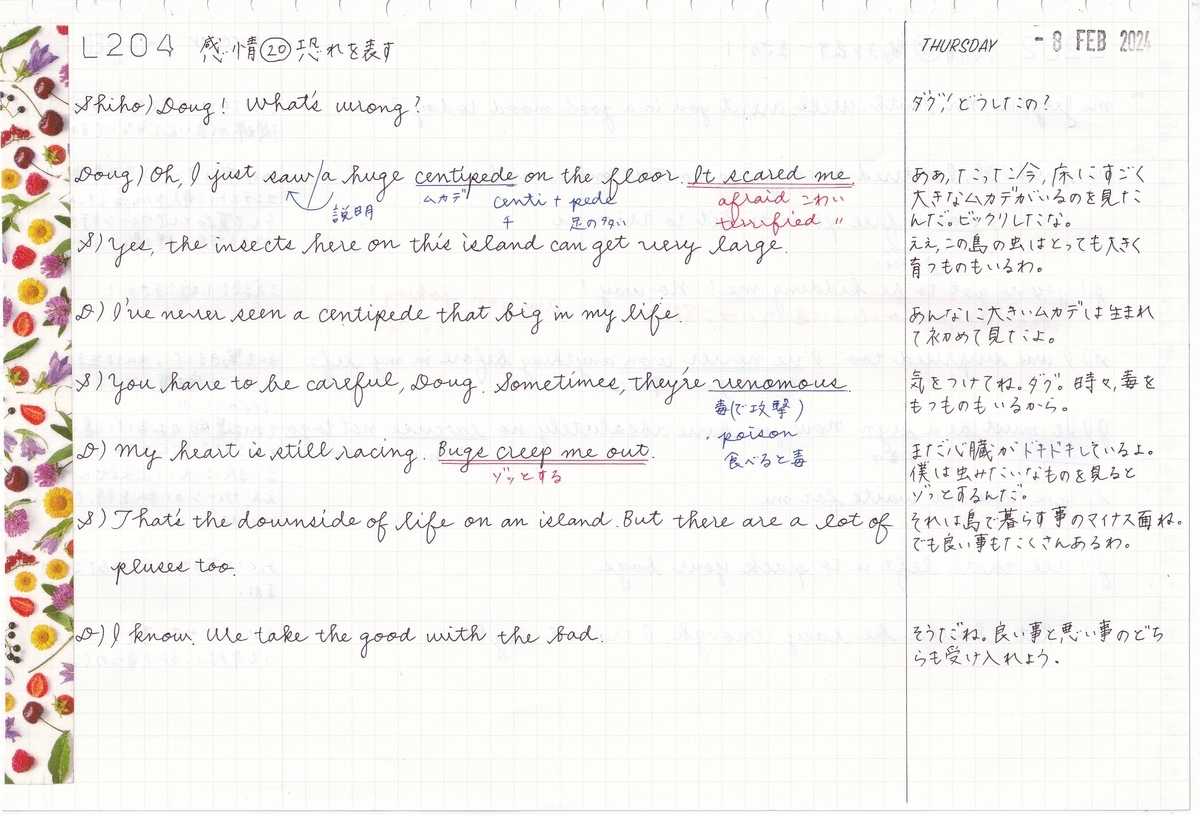 L204 感情⑳恐れを表す
THURSDAY - 8 FEB 2024
Shiho) Doug! What's wrong?
ダグ!どうしたの?
Doug) Oh, I just saw/a huge centipede on the floor. It scared me.
説明
ムカデ
centi + pede
千 足の多い
afraid こわい
terrified 〃
ああ、たった今、床にすごく
大きなムカデがいるのを見た
んだ。ビックリしたな。
S) Yes, the insects here on this island can get very large.
ええ、この島の虫はとっても大きく
育つものもいるわ。
D) I've never seen a centipede that big in my life.
あんなに大きいムカデは生まれ
て初めて見たよ。
S) You have to be careful, Doug. Sometimes, they're venomous.
毒(で攻撃)
・poison
食べると毒
気をつけてね。ダグ。時々、毒を
もつものもいるから。
D) My heart is still racing. Bugs creep me out.
ゾッとする
まだ心臓がドキドキしているよ。
僕は虫みたいなものを見ると
ゾッとするんだ。
S) That's the downside of life on an island. But there are a lot of
pluses too.
それは島で暮らす事のマイナス面ね。
でも良い事もたくさんあるわ。
D) I know. We take the good with the bad.
そうだね。良い事と悪い事のどち
らも受け入れよう。